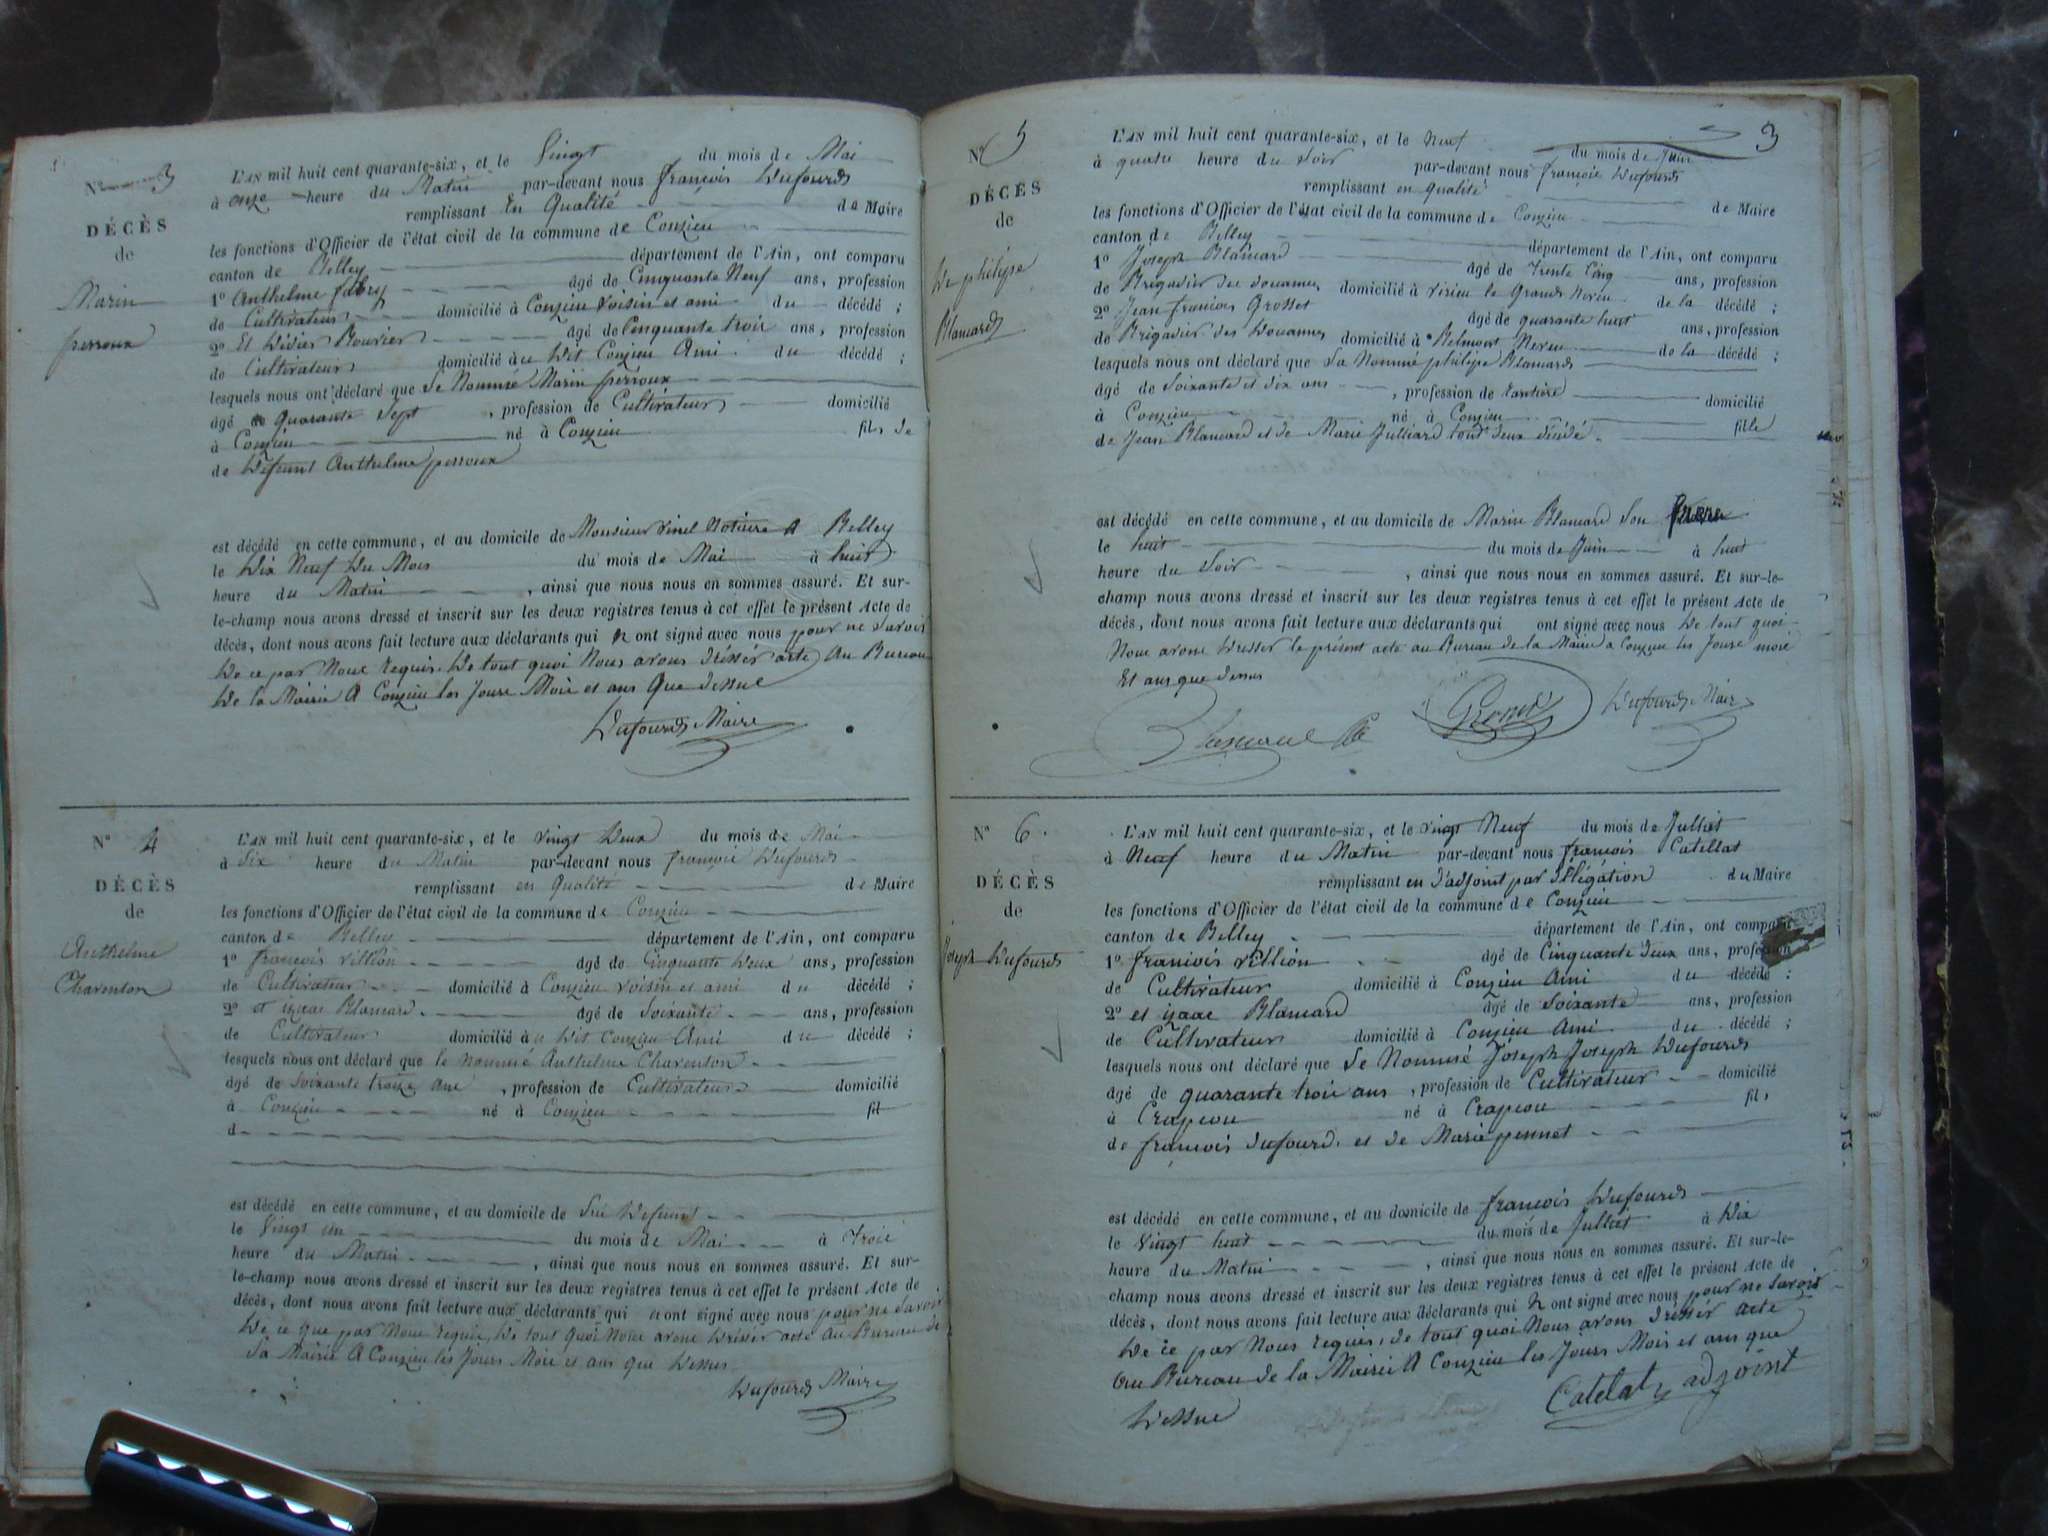 N° 3
DÉCÈS
de
Marin
perroux
L'AN mil huit cent quarante-six, et le Vingt du mois de Mai
à onze heure du Matin par-devant nous françois Dufourd
remplissant En Qualité de Maire
les fonctions d'Officier de l'état civil de la commune de Conzieu
canton de Belley département de l'Ain, ont comparu
1° Anthelme fabry âgé de Cinquante Neuf ans, profession
de Cultivateur domicilié à Conzieu voisin et ami du décédé ;
2° Et Didier Bouvier âgé de Cinquante trois ans, profession
de Cultivateur domicilié à u dit Conzieu Ami du décédé ;
lesquels nous ont déclaré que Le Nommé Marin perroux
âgé de quarante Sept , profession de Cultivateur domicilié
à Conzieu né à Conzieu fils de
de Defunt Anthelme perroux
est décédé en cette commune, et au domicile de Monsieur Vinel Notaire A Belley
le Dix Neuf Du Mois du mois de Mai à huit
heure du Matin , ainsi que nous nous en sommes assuré. Et sur-
le-champ nous avons dressé et inscrit sur les deux registres tenus à cet effet le présent Acte de
décès, dont nous avons fait lecture aux déclarants qui n ont signé avec nous pour ne Savoir
De ce par Nous requis. De tout quoi Nous avons dréssér acte Au Bureau
De la Mairie A Conzieu les Jours Mois et ans Que dessus
Dufourd Maire
N° 4
DÉCÈS
de
Anthelme
Charenton
L'AN mil huit cent quarante-six, et le vingt Deux du mois de Mai
à Six heure du Matin par-devant nous françois Dufourd
remplissant en Qualité de Maire
les fonctions d'Officier de l'état civil de la commune de Conzieu
canton de Belley département de l'Ain, ont comparu
1° francois villion âgé de Cinquante Deux ans, profession
de Cultivateur domicilié à Conzieu voisin et ami du décédé ;
2° et izaac Blancard âgé de Soixante ans, profession
de Cultivateur domicilié à u Dit Conzieu Ami du décédé ;
lesquels nous ont déclaré que le nommé Anthelme Charenton
âgé de Soixante treize ans , profession de Cultivateur domicilié
à Conzieu né à Conzieu fil
d
est décédé en cette commune, et au domicile de Du Defunt
le Vingt un du mois de Mai à Trois
heure du Matin , ainsi que nous nous en sommes assuré. Et sur-
le-champ nous avons dressé et inscrit sur les deux registres tenus à cet effet le présent Acte de
décès, dont nous avons fait lecture aux déclarants qui n ont signé avec nous pour ne Savoir
De ce que par Nous requis, De tout Quoi Nous avons Dresser acte Au Bureau de
la Mairie A Conzieu les Jours Mois et ans que Dessus
Dufourd Maire
3
N° 5
DÉCÈS
de
De philipe
Blancard
L'AN mil huit cent quarante-six, et le Neuf du mois de Juin
à quatre heure du Soir par-devant nous françois Dufourd
remplissant en qualité de Maire
les fonctions d'Officier de l'état civil de la commune de Conzieu
canton de Belley département de l'Ain, ont comparu
1° Joseph Blancard âgé de Trente Cinq ans, profession
de Brigadier des douannes domicilié à virieu le Grand Neveu de la décédé ;
2° Jean francois Grosset âgé de quarante huit ans, profession
de Brigadier des Douannes domicilié à Belmont Neveu de la décédé ;
lesquels nous ont déclaré que La Nommé philipe Blancard
âgé de Soixante et dix ans , profession de rentière domicilié
à Conzieu né à Conzieu fille
de Jean Blancard et de Marie Julliard tout deux décédé
est décédé en cette commune, et au domicile de Marin Blancard Son frere
le huit du mois de Juin à huit
heure du Soir , ainsi que nous nous en sommes assuré. Et sur-le-
champ nous avons dressé et inscrit sur les deux registres tenus à cet effet le présent Acte de
décès, dont nous avons fait lecture aux déclarants qui ont signé avec nous De tout quoi
Nous avons Dresser le présent acte au Bureau de la Mairie a Conzieu les Jours mois
Et ans que dessus
Blancard Grosset Dufourd Maire
N° 6
DÉCÈS
de
Joseph Dufourd
L'AN mil huit cent quarante-six, et le vingt Neuf du mois de Julliet
à Neuf heure du Matin par-devant nous françois Catellat
remplissant en d'adjoint par délégation du Maire
les fonctions d'Officier de l'état civil de la commune de Conzieu
canton de Belley département de l'Ain, ont comparu
1° francois villion âgé de Cinquante deux ans, profession
de Cultivateur domicilié à Conzieu Ami du décédé ;
2° et izaac Blancard âgé de Soixante ans, profession
de Cultivateur domicilié à Conzieu Ami du décédé ;
lesquels nous ont déclaré que Le Nommé Joseph Joseph Dufourd
âgé de quarante trois ans , profession de Cultivateur domicilié
à Crapeou né à Crapeou fils
de francois dufourd et de Marie pennet
est décédé en cette commune, et au domicile de francois Dufourd
le Vingt huit du mois de Julliet à Dix
heure du Matin , ainsi que nous nous en sommes assuré. Et sur-le-
champ nous avons dressé et inscrit sur les deux registres tenus à cet effet le présent Acte de
décès, dont nous avons fait lecture aux déclarants qui n ont signé avec nous pour ne Savoir
De ce par Nous requis, de tout quoi Nous avons Dréssér acte
Au Bureau de la Mairie A Conzieu les Jours Mois et ans que
Dessus
Catelat adjoint